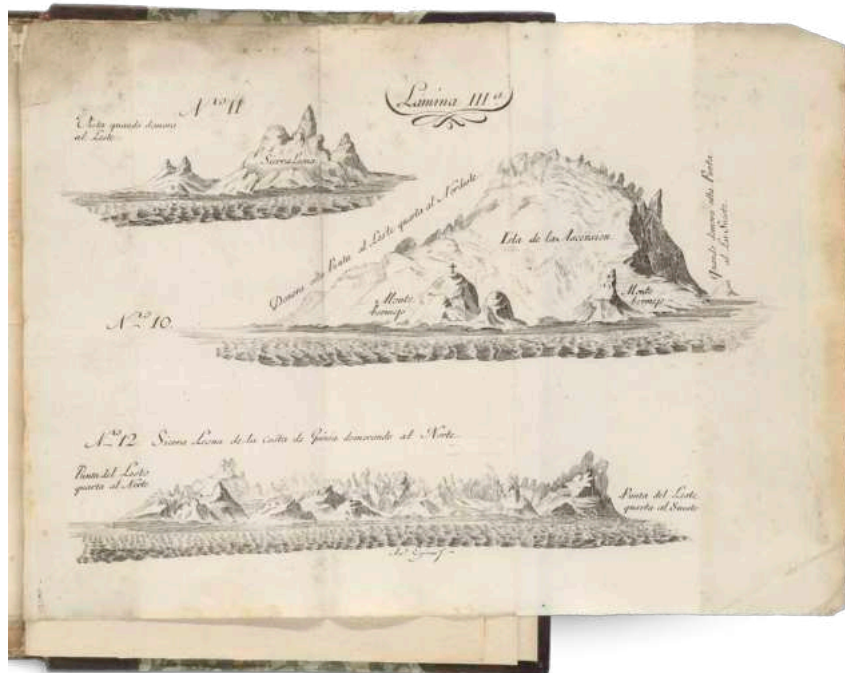 Lamina III.a
N.ro 11
Vista quando demora
al Leste
Sierra Leona
Demora esta Punta al Leste quarta al Nordeste
Isla de la Ascension
Quando demora esta Punta
al Les Sueste
Monte
bermejo
Monte
bermejo
N.ro 10.
N.ro 12 Sierra Leona de la Costa de Guinea demorando al Norte
Punta del Leste
quarta al Norte
Punta del Leste
quarta al Sueste